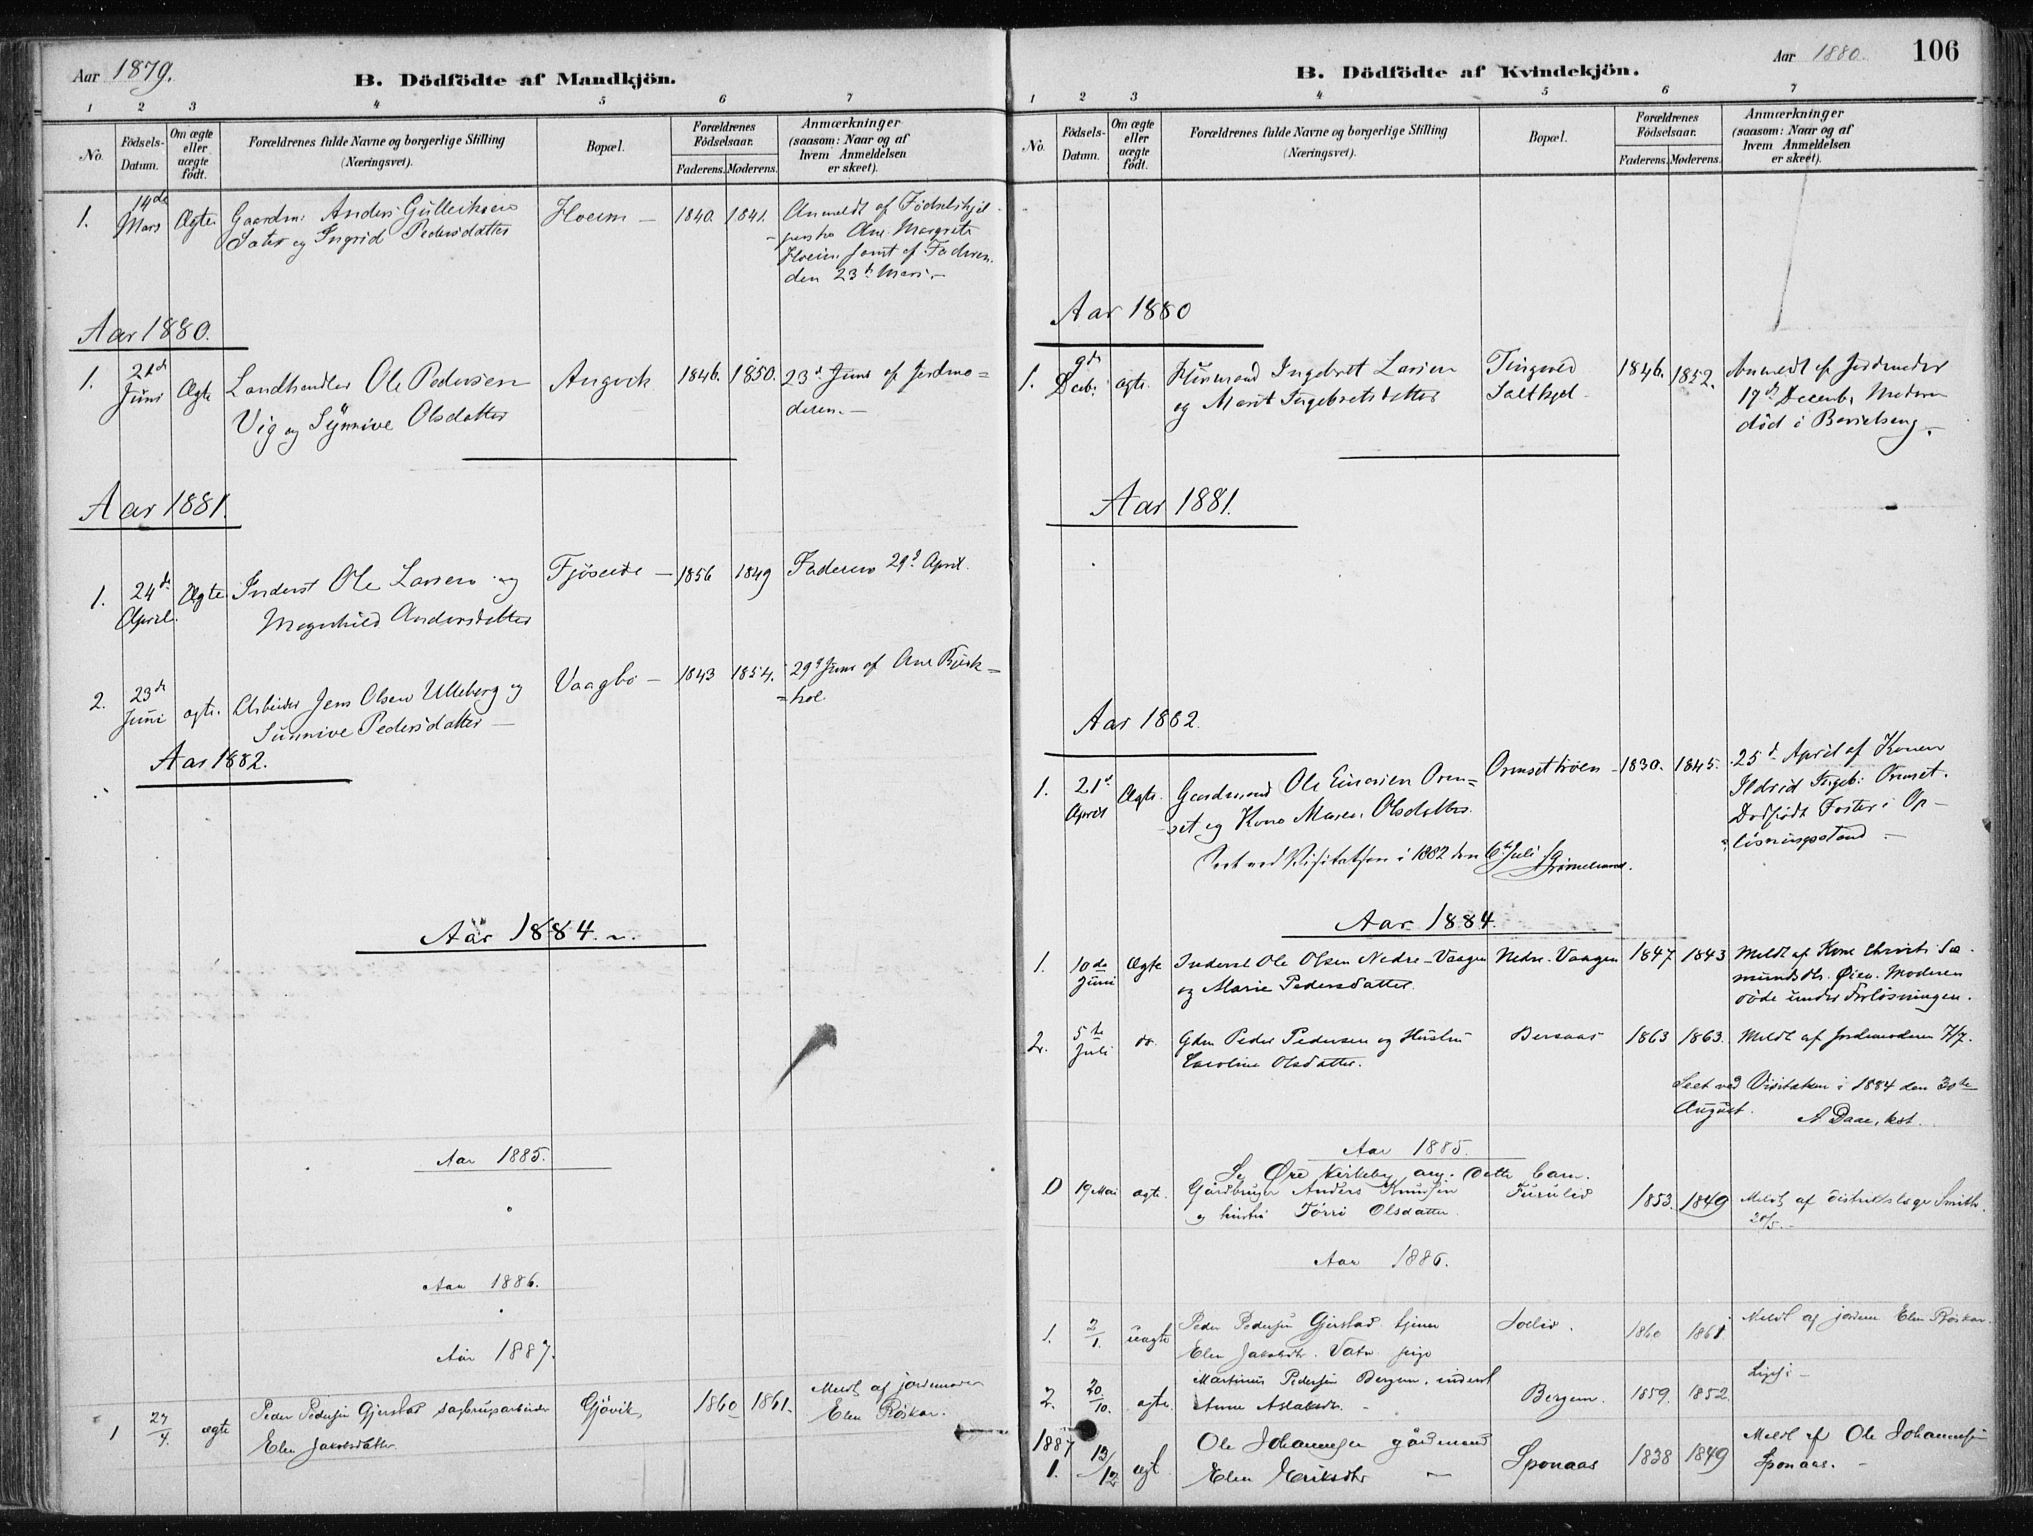 Aar 1879.
B. Dödfödte af Mandkjön.
1 2 3 4 5 6 7
No.
Födsels-
Datum.
Om ægte
eller
uægte
födt.
Forældrenes fulde Navne og borgerlige Stilling
(Næringsvei).
Bopæl.
Forældrenes
Födselsaar.
Faderens. Moderens.
Anmærkninger
(saasom: Naar og af
hvem Anmeldelsen
er skeet).
1. 14de Mars Ægte Gaardm: Anders Gulleiksen
Sæter og Ingrid Pedersdatter
Hoeim – 1840. 1841.
Anmeldt af Fødselshjel-
perske Ane Margrete
Hoeim samt af Faderen
den 23de Mars. –
Aar 1880.
1. Juni Ægte Landhandler Ole Pedersen
Vig og Synnive Olsdatter
Angvik 1846. 1850.
23de Juni af Jordmo-
deren. –
Aar 1881.
1. 24de April. Ægte Inderst Ole Larsen og
Magnhild Andersdatter
Fjøseide – 1856 1849 Faderen 29de April.
2. 23de Juni ægte. Arbeider Jens Olsen Ulleberg og
Sünnive Pedersdatter –
Vaagbø – 1843 1854. 29de Juni af Ane Birk-
hol
Aar 1882.
Aar 1884.
Aar 1885.
Aar 1886.
Aar 1887.
1 27/4. ægte Peder Pedersen Gjerstad sagbrugsarbeider
Elen Jakobsdatter
Gjøvik 1860 1861.
Meldt af jordmoder
Elen Røskar.
Aar 1880. 106
B. Dödfödte af Kvindekjön.
1 2 3 4 5 6 7
No.
Födsels-
Datum.
Om ægte
eller
uægte
födt.
Forældrenes fulde Navne og borgerlige Stilling
(Næringsvei).
Bopæl.
Forældrenes
Födselsaar.
Faderens. Moderens.
Anmærkninger
(saasom: Naar og af
hvem Anmeldelsen
er skeet).
Aar 1880
1. 9de Decb. ægte. Husmand Ingebret Larsen
og Marit Ingebretsdatter
Tingvold
1846. 1852.
Anmeldt af Jordmoder
17de Decemb. Moderen
död i Barselseng.
Aar 1881.
Aar 1882.
1. 21de April Ægte. Gaardmand Ole Einersen Orm-
set og Kone Maren Olsdatter.
Ormsettrøen 1830. 1845.
25de April af Konen
Ildrid Ingeb: Ormset.
Dødfødt Foster i Op-
løsningsstand –
Seet ved Visitatsen i 1882 den 6te Juli
Aar 1884.
1. 10de Juni Ægte Inderst Ole Olsen Nedre-Vaagen
og Marie Pedersdatter.
Nedre-Vaagen 1847 1843
Meldt af Kone Christi Sa-
mundsdtr. Øien. Moderen
døde under Forløsningen.
2. 5te Juli do. Gdm Peder Pedersen og Hustru
Caroline Olsdatter.
Bersaas 1863 1863. Meldt af Jordmoderen 7/7.
Seet ved Visitatsen i 1884 den 30te
August. A Daae, kst.
Aar 1885.
Se Øre kirkebog ang. dette barn.
19 Mai ægte. Gårdbruger Anders Knudsen
og hustru Torri Olsdatter.
Furulid 1853. 1849 Meldt af distriktslæge Smith
20/5. –
Aar 1886.
1. 2/1. uægte Peder Pedersen Gjerstad tjener
Elen Jakobsdtr. Vatn pige
1860 1861 Meldt af jordm Elen Røskar.
2. 20/10. ægte. Martinus Pedersen Bergem, inderst
Anne Aslaksdtr. –
Bergem. 1859. 1852. Ligeså –
1887
1. 13/12 ægt Ole Johannesen gårdmand
Elen Eriksdtr –
Sponaas 1838 1849
Meldt af Ole Johannesen
Sponaas. –